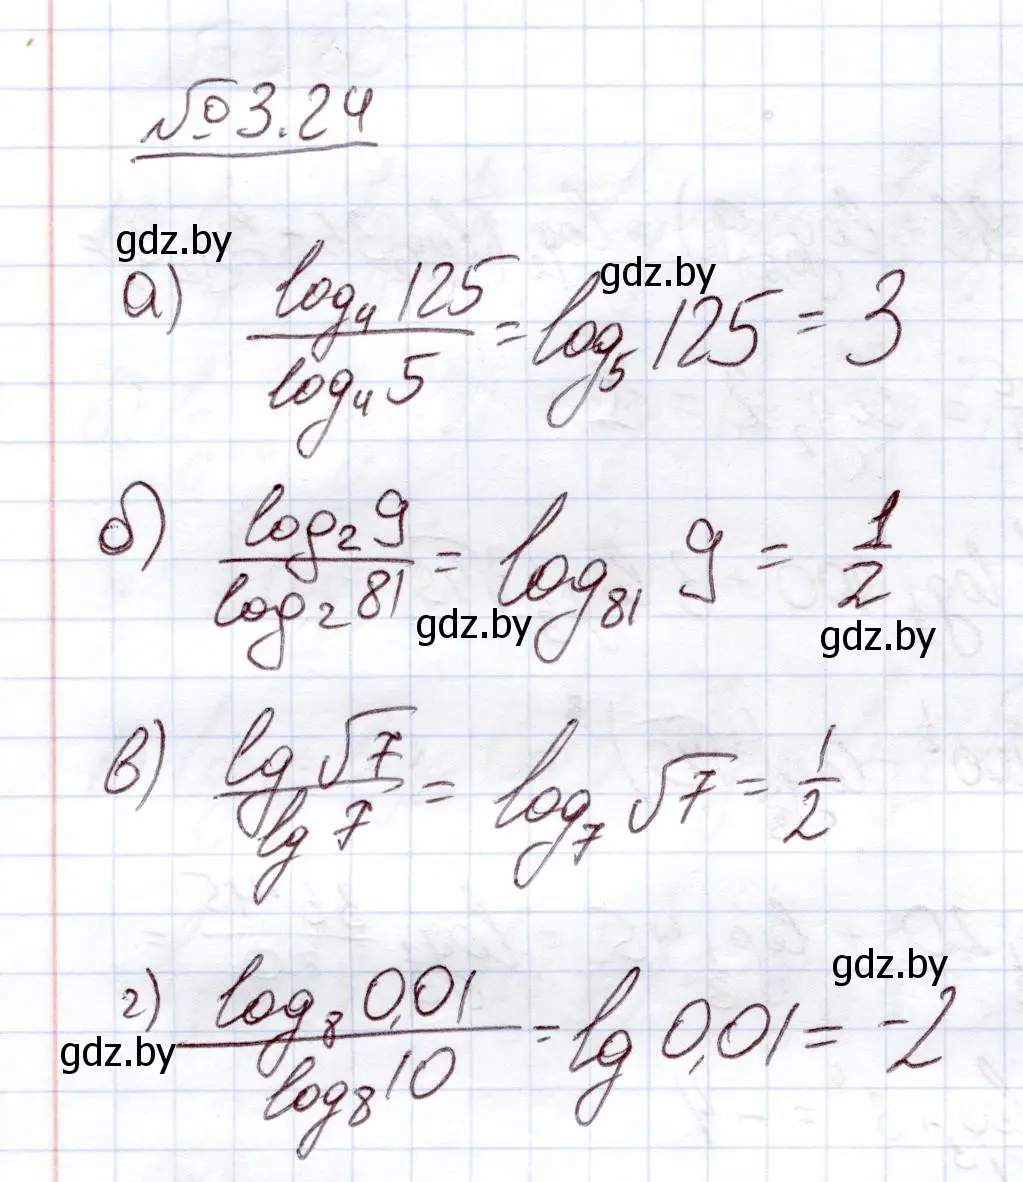 №3.24
gdz.by
а) log₄125 / log₄5 = log₅125 = 3
gdz.by
б) log₂9 / log₂81 = log₈₁9 = 1/2
gdz.by
gdz.by
в) lg√7 / lg7 = log₇√7 = 1/2
г) log₈0,01 / log₈10 = lg0,01 = -2
gdz.by
gdz.by